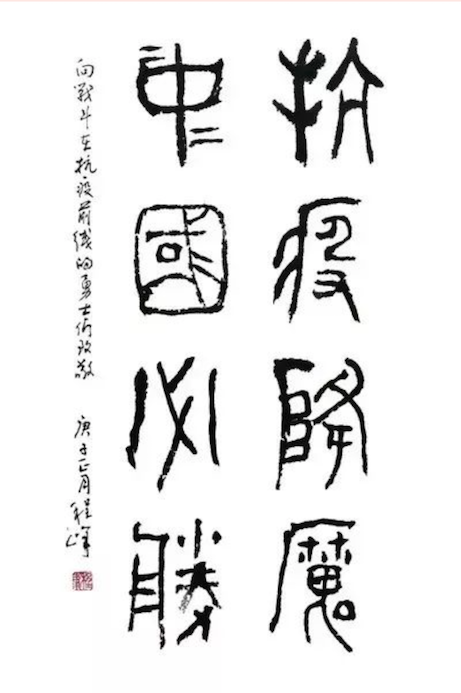 抗疫降魔
中國必勝
向戰斗在抗疫前綫的勇士们致敬
庚子正月程峰